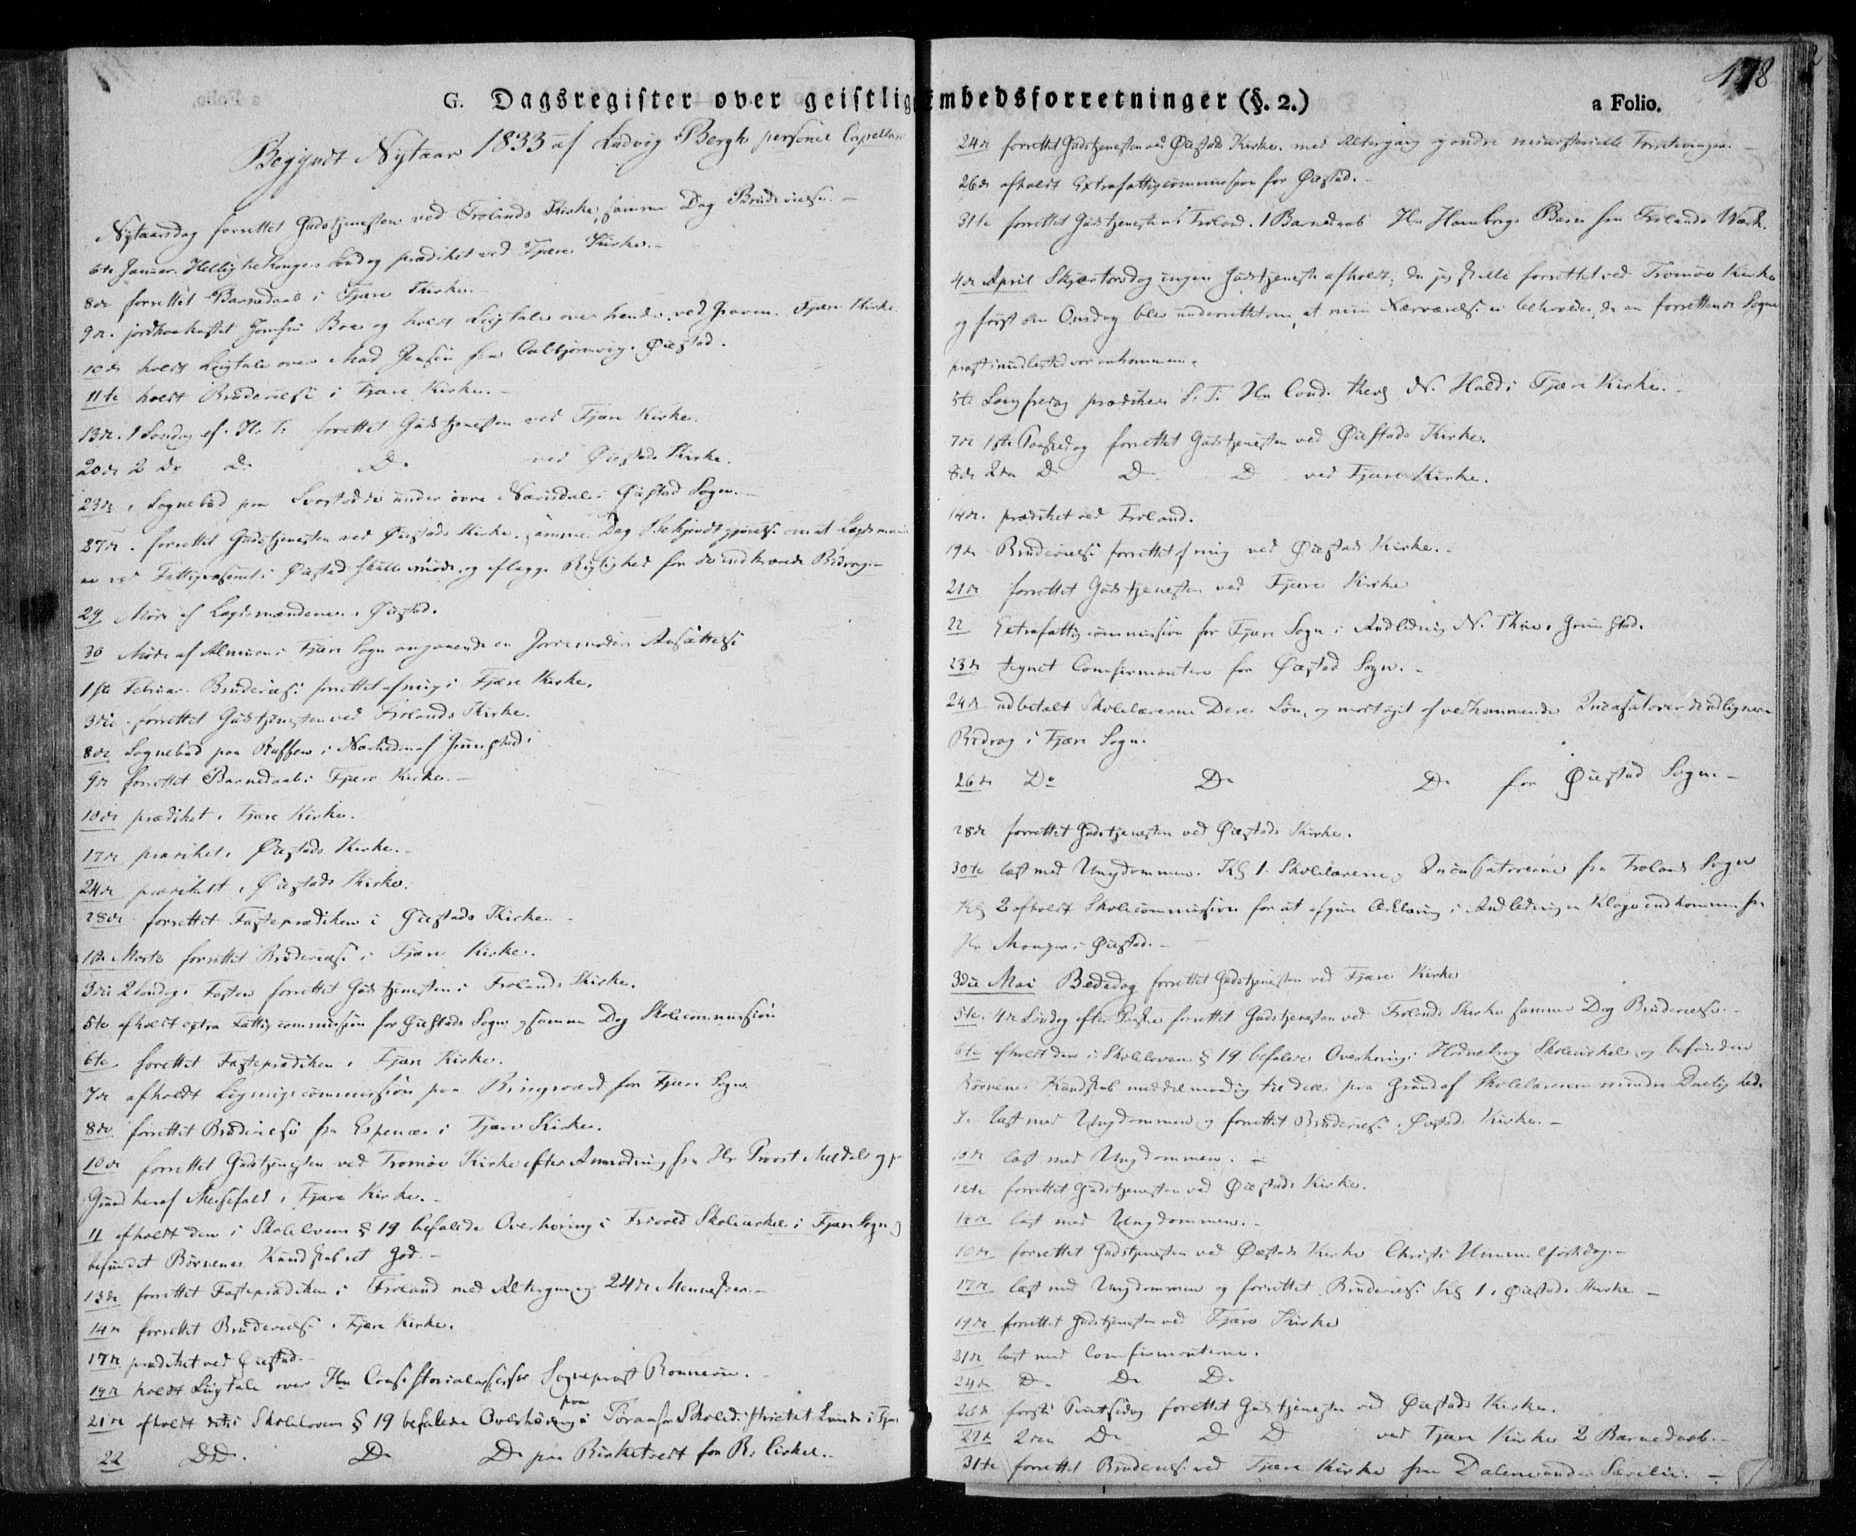 178
G. Dagsregister over geistlige Embedsforretninger (§. 2.)
a Folio.
Begyndt Nytaar 1833 af Ludvig Bergh personel Capellan
Nytaarsdag forrettet Gudstjenesten ved Frolands Kirke, samme Dag Brudevielse.
6te Januar. Hellig tre Kongers Søndag prædiket ved Fjære Kirke.
8de forrettet Barnedaab i Fjære Kirke.
9de jordpaakastet Jomfru Boe og holdt Liigtale over hende, ved Graven. Fjære Kirke.
10de holdt Liigtale over Mad Jensen fra Øiestad.
11te holdt Brudevielse i Fjære Kirke.
13de. 1 Søndag ef. H. T. forrettet Gudstjenesten ved Fjære Kirke.
20de 2 Do Do Do ved Øiestads Kirke.
23de i Sognebud paa under øvre i Øiestad Sogn.
27de. forrettet Gudstjenesten ved Øiestads Kirke. samme Dag Bekjendtgjørelse om at Lægdsmænde-
ne ved Fattigvæsenet i Øiestad skulle møde og aflægge Rigtighed for de indkrævede Bidrag.
29 Møde af Lægdsmændene i Øiestad.
30 Møde af Almuen i Fjære Sogn angaaende en Jordemoders Ansættelse
1ste Februar. Brudevielse forrettet af mig i Fjære Kirke.
3die. forrettet Gudstjenesten ved Frolands Kirke.
8de Sognebud paa i Nærheden af Grimstad.
9de forrettet Barnedaab i Fjære Kirke.
10de prædiket i Fjære Kirke.
17de prædiket i Øiestads Kirke.
24de prædiket i Øiestads Kirke.
28de forrettet Fasteprædiken i Øiestads Kirke.
1ste Marts forrettet Brudevielse i Fjære Kirke.
3die 2 Søndag i Fasten forrettet Gudstjenesten i Frolands Kirke.
5te afholdt extra Fattigcommission for Øiestads Sogn og samme Dag Skolecommission
6te forrettet Fasteprædiken i Fjære Kirke.
7de afholdt Ligningscommission paa Bringsværd for Fjære Sogn.
8de forrettet Brudevielse fra Espenæs i Fjære Kirke.
10de forrettet Gudstjenesten ved Tromøe Kirke efter Anmodning fra Hr Provst Meldal og p
Grund heraf Messefald i Fjære Kirke.
11 afholdt den i Skoleloven § 19 befalede Overhøring i Frivold Skolecirkel i Fjære Sogn og
befundet Børnenes Kundskabset god.
13de forrettet Fasteprædiken i Froland med Altergang 24de Mennesker.
14de forrettet Brudevielse i Fjære Kirke.
17de prædiket ved Øiestad.
19de holdt Liigtale over Hr Consistorialassessor Sognepræst
21de afholdt den i Skoleloven § 19 befalede Overhøring paa Skoledistrictet i Fjære
22 Do Do. Do Do paa Birketvedt for B. Cirkel.
24de forrettet Gudstjenesten ved Øiestads Kirke. med Altergang og andre ministerielle Forretninger.
26de afholdt Extrafattigcommission for Øiestad.
31te forrettet Gudstjenesten i Froland. 1 Barnedaab Hr Hamborgs Barn fra Frolands Værk.
4de April Skjærtorsdag ingen Gudstjeneste afholdt, da jeg skulle forrettet ved Tromøe Kirke
og først om Onsdag blev underrettet om, at min Nærværelse ei behøvedes, da en forrettende Sogne
præst imidlertid var ankommen.
5te Langfredag prædikede S. T. Hr Cand. theol N. Hald i Fjære Kirke.
7de 1ste Paaskedag forrettet Gudstjenesten ved Øiestads Kirke.
8de 2den Do Do Do ved Fjære Kirke.
14de. prædiket ved Froland.
19de Brudevielse forrettet af mig ved Øiestads Kirke.
21de forrettet Gudstjenesten ved Fjære Kirke
22 Extrafattigcommission for Fjære Sogn i Anledning N. Grimstad.
23de tegnet Confirmanter for Øiestad Sogn.
24de udbetalt Skolelærerne Deres Løn, og modtaget af vedkommende Incassatorer de udlignede
Bidrag i Fjære Sogn.
26de Do Do Do for Øiestad Sogn.
28de forrettet Gudstjenesten ved Øiestads Kirke.
30te læst med Ungdommen. Kl 1. Skolelærerne og Incassatorerne fra Froland Sogn
Kl 2 afholdt Skolecommission for at afgive Erklæring i Anledning en Klage indkommen fra
Hr i Øiestad.
3die Mai Bededag forrettet Gudstjenesten ved Fjære Kirke
5te. 4de Søndag efter Paaske forrettet Gudstjenesten ved Frolands Kirke samme Dag Brudevielse.
6te afholdt den i Skoleloven § 19 befalede Overhøring i Skolecirkel og befunden
Børnenes Kundskab middelmaadig til deels paa Grund af Skolelærerens mindre Duelighed.
7de læst med Ungdommen og forrettet Brudevielse i Øiestads Kirke.
10de læst med Ungdommen.
12te forrettet Gudstjenesten ved Øiestads Kirke.
14de læst med Ungdommen.
16de forrettet Gudstjenesten ved Øiestads Kirke Christi Himmelfartsdag.
17de læst med Ungdommen og forrettet Brudevielse Kl 1 i Øiestads Kirke
19de forrettet Gudstjenesten ved Fjære Kirke
21de læst med Confirmanterne.
24de Do Do Do
26de første Pintsedag forrettet Gudstjenesten ved Øiestads Kirke.
27de 2den Do Do Do ved Fjære Kirke 2 Barnedaab.
31te forrettet Brudevielse ved Fjære Kirke fra Dalene under